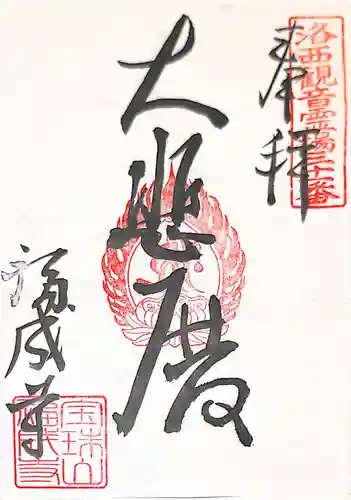 奉拝
洛西観音霊場三十番
大悲殿
福成寺
宝珠山
福成寺